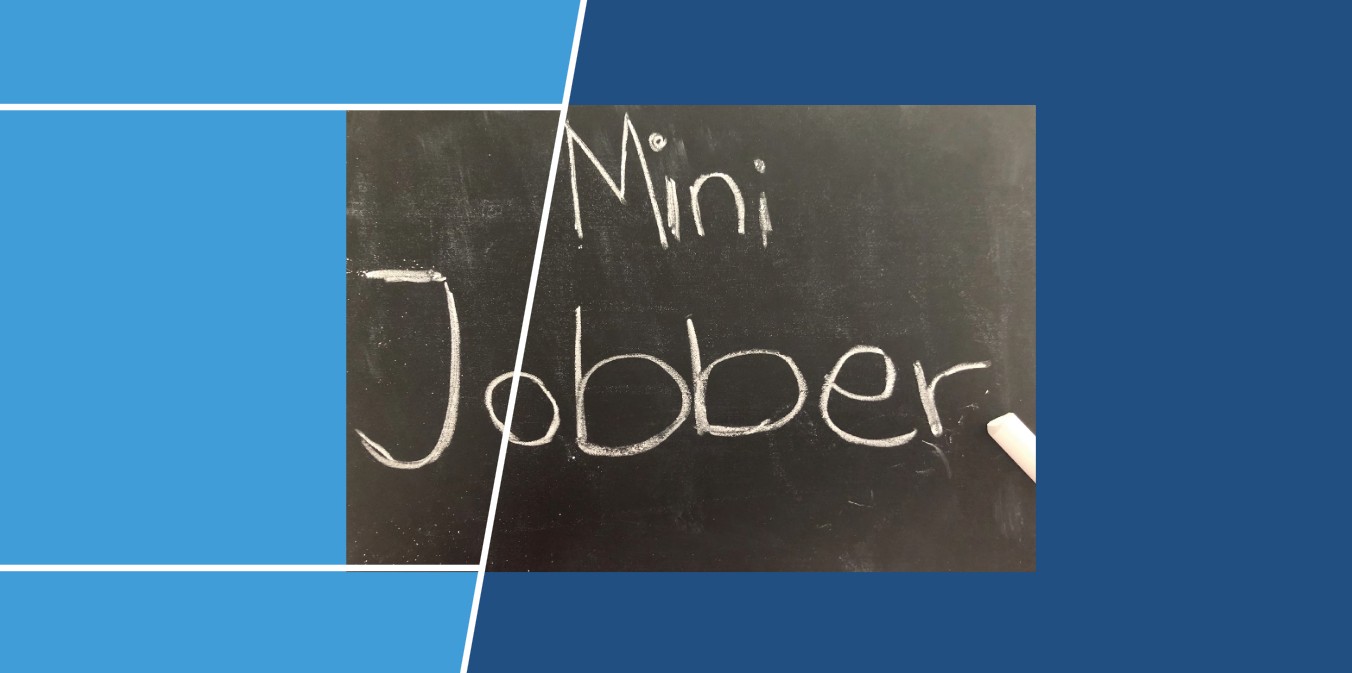 Mini
Jobber